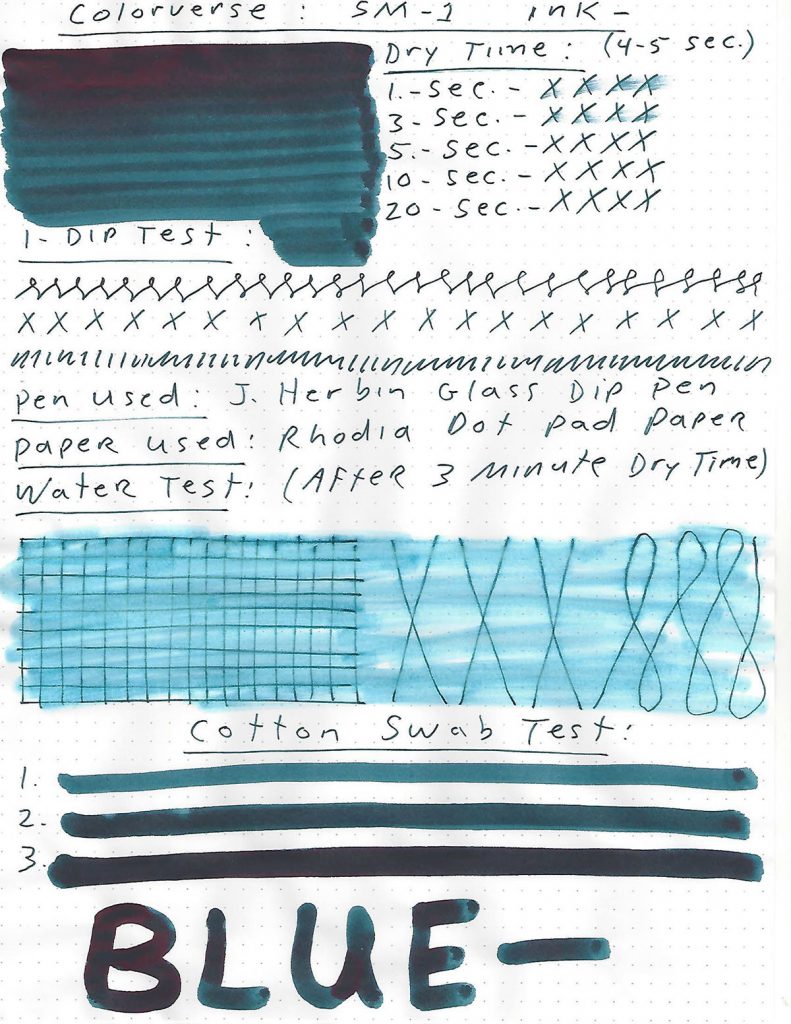 Colorverse: SM-1 ink-
Dry Time: (4-5 sec.)
1.-Sec.- X X X X
3-Sec.- X X X X
5.-Sec.- X X X X
10-Sec.- X X X X
20-Sec.- X X X X
1-Dip Test:
X X X X X X X X X X X X X X X X X X
Pen used: J. Herbin Glass Dip Pen
Paper used: Rhodia Dot Pad Paper
Water Test: (After 3 Minute Dry Time)
Cotton Swab Test:
1.
2-
3.
BLUE-